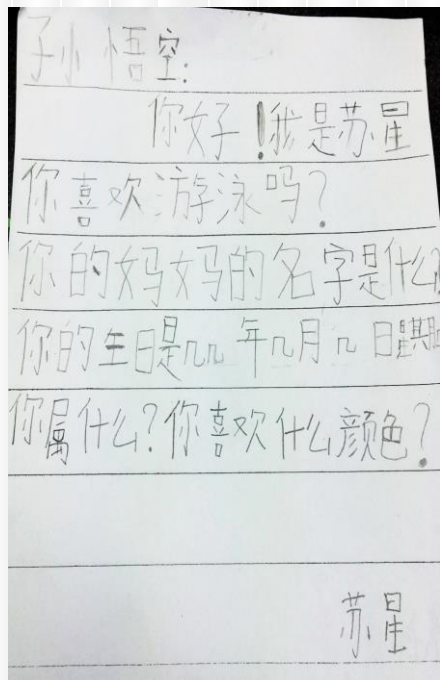 子小悟空:
你好!我是苏星
你喜欢游泳吗?
你的妈妈的名字是什么?
你的生日是几几年几月几日星期
你属什么?你喜欢什么颜色?
苏星